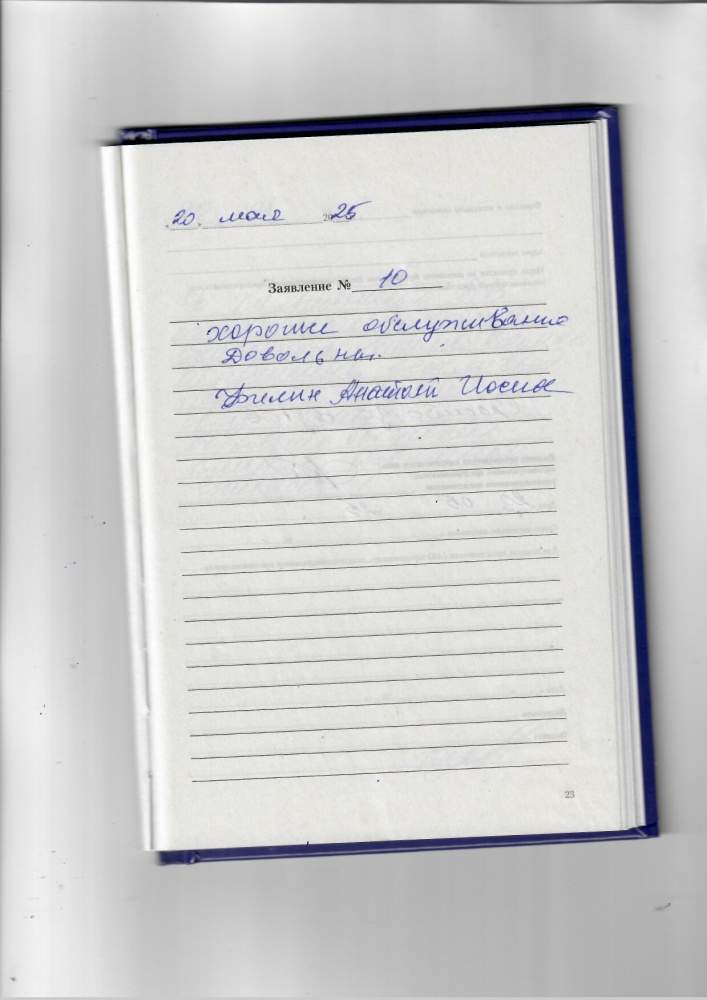 „20" мая 2025
Заявление № 10
хорошие обслуживание
Довольна.
Филин Анатолий Иосиф
23